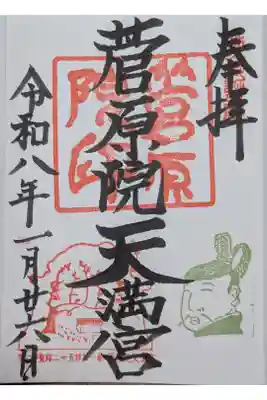 奉拝
菅原院天満宮
令和八年一月廿六日